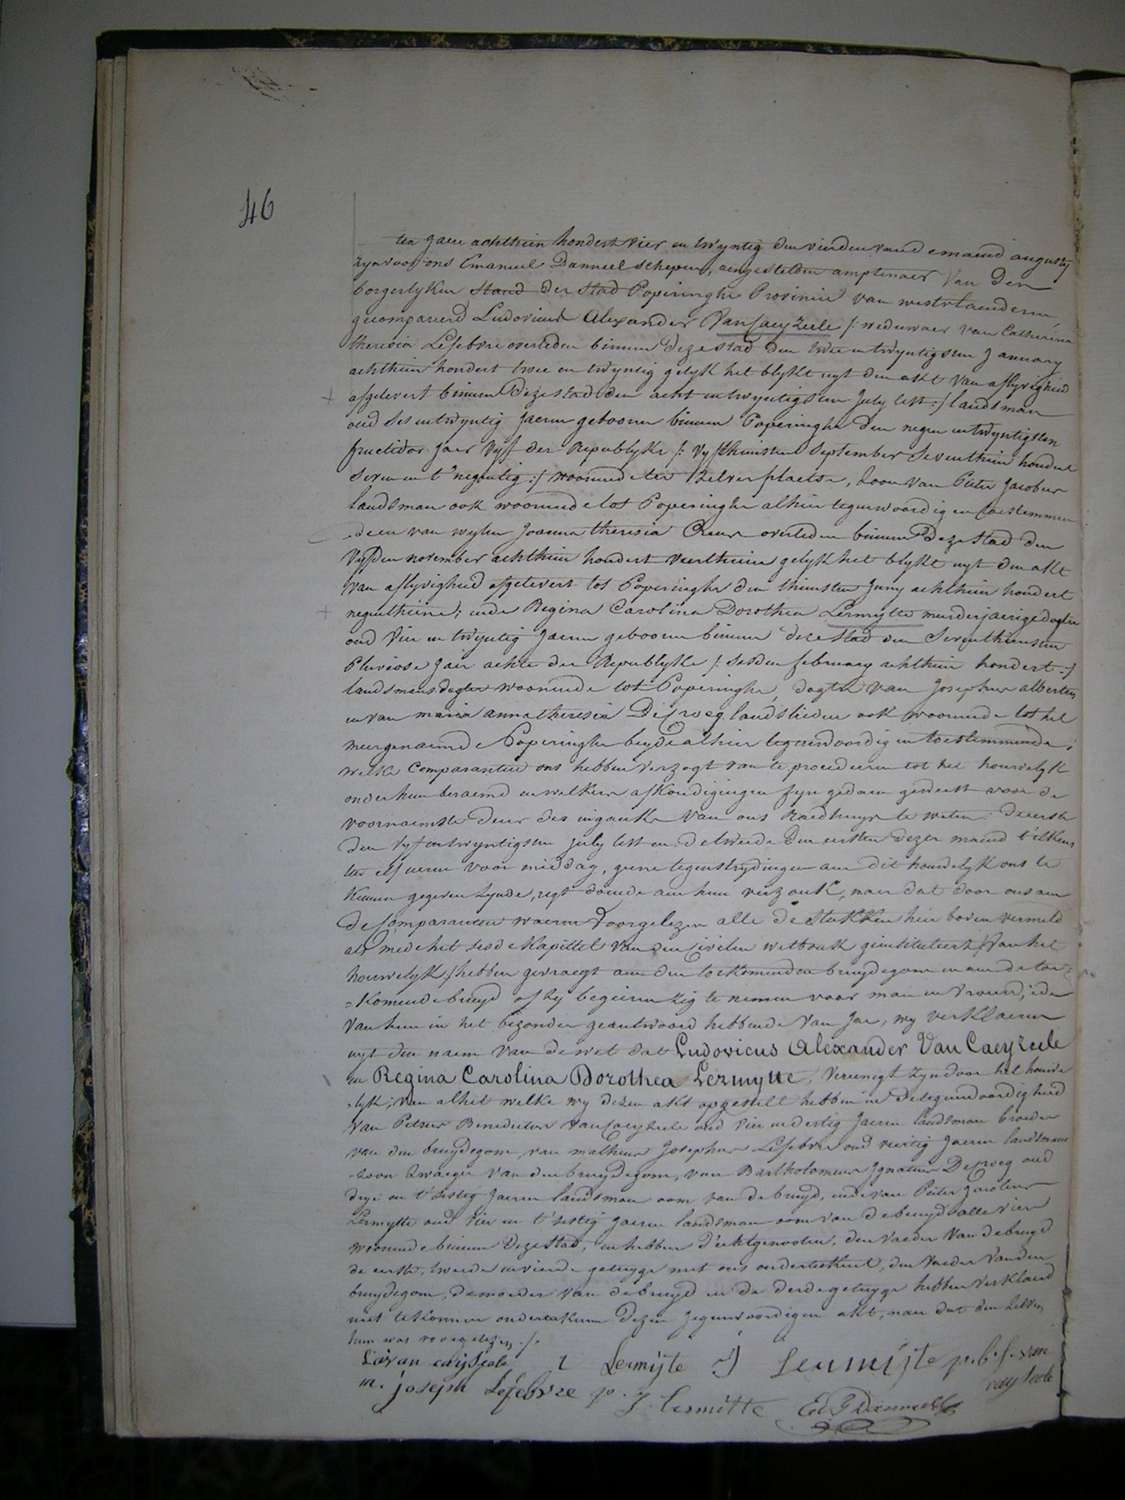 46
ten jaere achthien hondert vier en twyntig den vierden van de maend augusty
zyn voor ons Emanuel Danneel schepen, aengestelden amptenaer van den
borgerlyken stand der stad Poperinghe Provincie van westvlaenderen
gecompareerd Ludovicus Alexander Van Caeyzeele /: weduwaer van Catherina
theresia Lefebvre overleden binnen deze stad den twee en twyntigsten January
achthien hondert twee en twyntig gelyk het blykt uyt den akt van aflyvigheid
afgelevert binnen deze stad den acht en twyntigsten July lest :/ landsman
oud ses en twyntig jaeren geboren binnen Poperinghe den negen en twyntigsten
fructidor jaer vyf der Republyke /: vyfthienste September Seventhien hondert
seven en t'negentig :/ woonende ter zelver plaetse, zoon van Pieter Jacobus
landsman ook woonende tot Poperinghe alhier tegenwoordig en toestemmen
=de en van wylen Joanna theresia overleden binnen deze stad den
vyfden november achthien hondert veerthien gelyk het blykt uyt den akt
van aflyvigheid afgelevert tot Poperinghe den thienste Juny achthien hondert
negenthiene; ende Regina Carolina Dorothea Lermytte meerderjaerige dogter
oud vier en twyntig jaeren geboren binnen deze stad den Seventhiensten
Pluviose jaer achte der Republyke /: sesden february achthien hondert :/
landsmans dogter woonende tot Poperinghe, dogter van Josephus albertus
en van maria anna theresia Desroeg landslieden ook woonende tot het
meergenaemde Poperinghe beyde alhier tegenwoordig en toestemmende;
welke comparanten ons hebben verzogt van te procederen tot het houwelyk
onder hun beraemd en welkers afkondigingen zyn gedaen geweest voor de
voornaemste deur des ingank van ons Raedhuys te weten: de eerste
den vyf en twyntigsten july lest en de tweede den eersten dezer maend t'elkens
ten elf ueren voor middag, geene tegenstrydingen aen dit houwelyk ons te
kennen gegeven zynde, regt doende aen hun verzoek, naer dat door ons aen
de comparanten waeren voorgelezen alle de stukken hier boven vermeld
als mede het sesde kapittel van den Civielen wetboek geintituleert /: van het
houwelyk :/ hebben gevraegt aen den toekomenden bruydegom en aen de toe=
=komende bruyd of zy begeeren zig te nemen voor man en vrouw, ieder
van hun in het bezonder geantwoord hebbende van Jae, wy verklaeren
uyt den naem van de wet dat Ludovicus Alexander Van Caeyzeele
en Regina Carolina Dorothea Lermytte, vereenigt zyn door het houwe
=lyk; van alhet welke wy dezen akt opgestelt hebben in de tegenwoordigheid
van Petrus Benedictus Van Caeyzeele oud vier en dertig jaeren landsman broeder
van den bruydegom, van matheus Josephus Lefebvre oud veertig jaeren landsman
schoon Zwaeger van den bruydegom, van Bartholomeus Ignatius Desroeg oud
dryi en t'sestig jaeren landsman oom van de bruyd, ende van Pieter Jacobus
Lermytte oud vier en t'sestig jaeren landsman oom van de bruyd alle vier
woonende binnen deze stad, en hebben d'echtgenooten, den vaeder van de bruyd
de eerste, tweede en vierde getuyge met ons onderteekent, den vaeder van den
bruydegom, de moeder van de bruyd en de derde getuyge hebben verklaerd
niet te konnen onderteekenen dezen tegenwoordigen akt, naer dat den zelven
hun was voorgelezen ./.
L a van caeyzeele Lermijte J Lermijte p. b. f. van
caeyzeele
m. joseph Lefebvre p. J. Lermitte Ed P Danneel